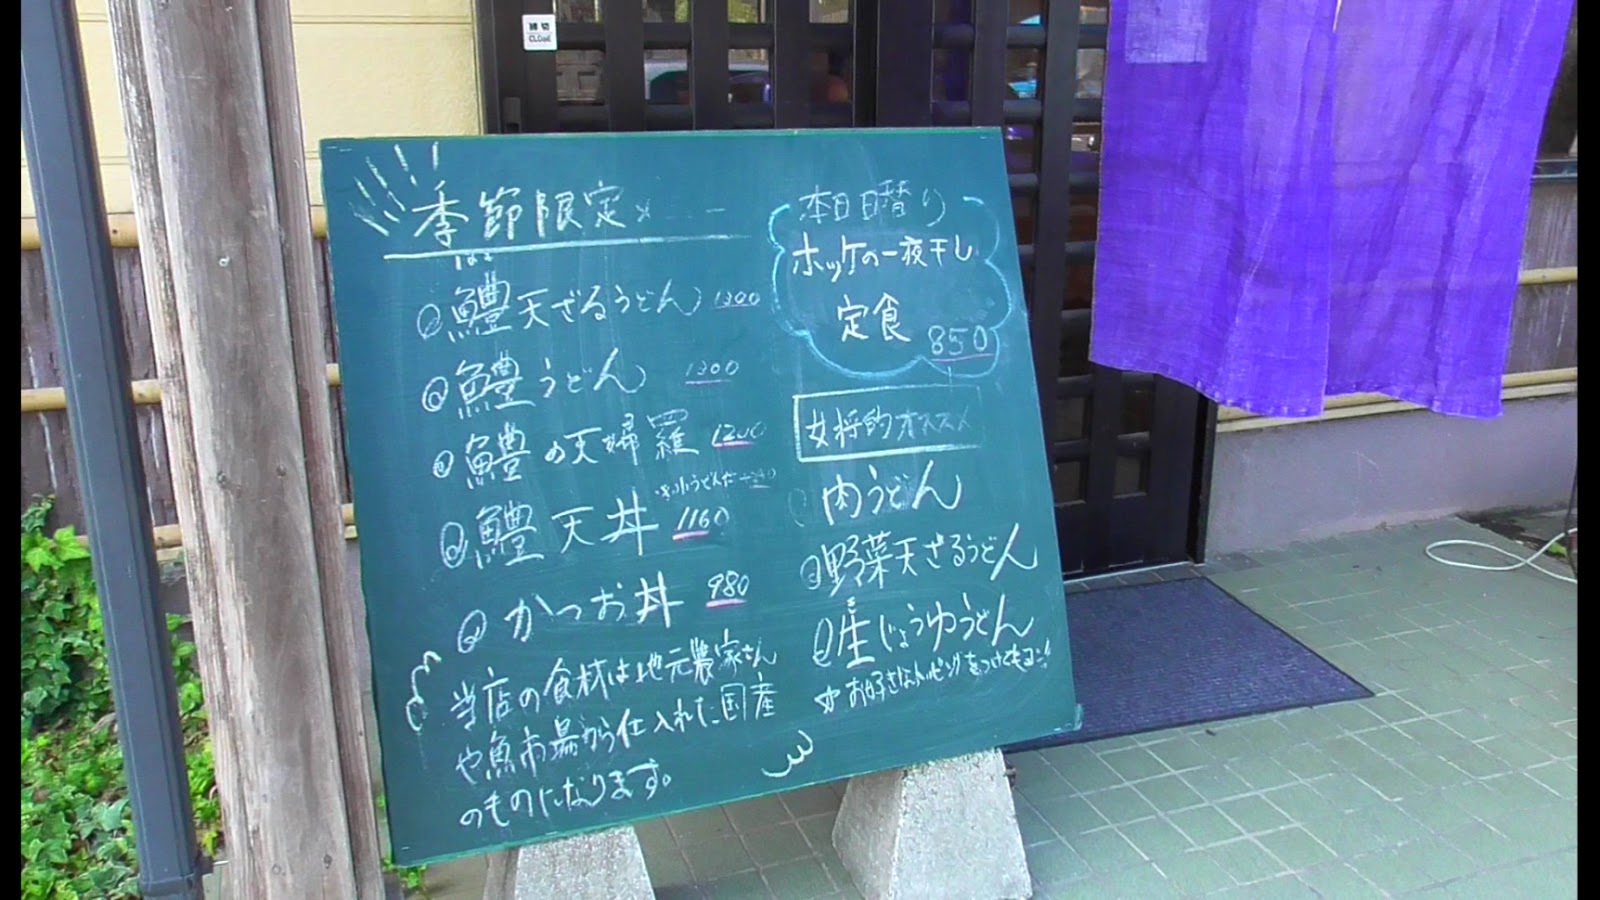 締切
CLOSE
季節限定
はも
鱧天ざるうどん 1300
鱧うどん 1300
鱧の天婦羅 1200
鱧天丼 1160
かつお丼 980
当店の食材は地元農家さん
や魚市場から仕入れた国産
のものになります。
本日日替り
ホッケの一夜干し
定食 850
女将的オススメ
肉うどん
野菜天ざるうどん
生じょうゆうどん
☆お好きなトッピングをつけてもヨシ!!